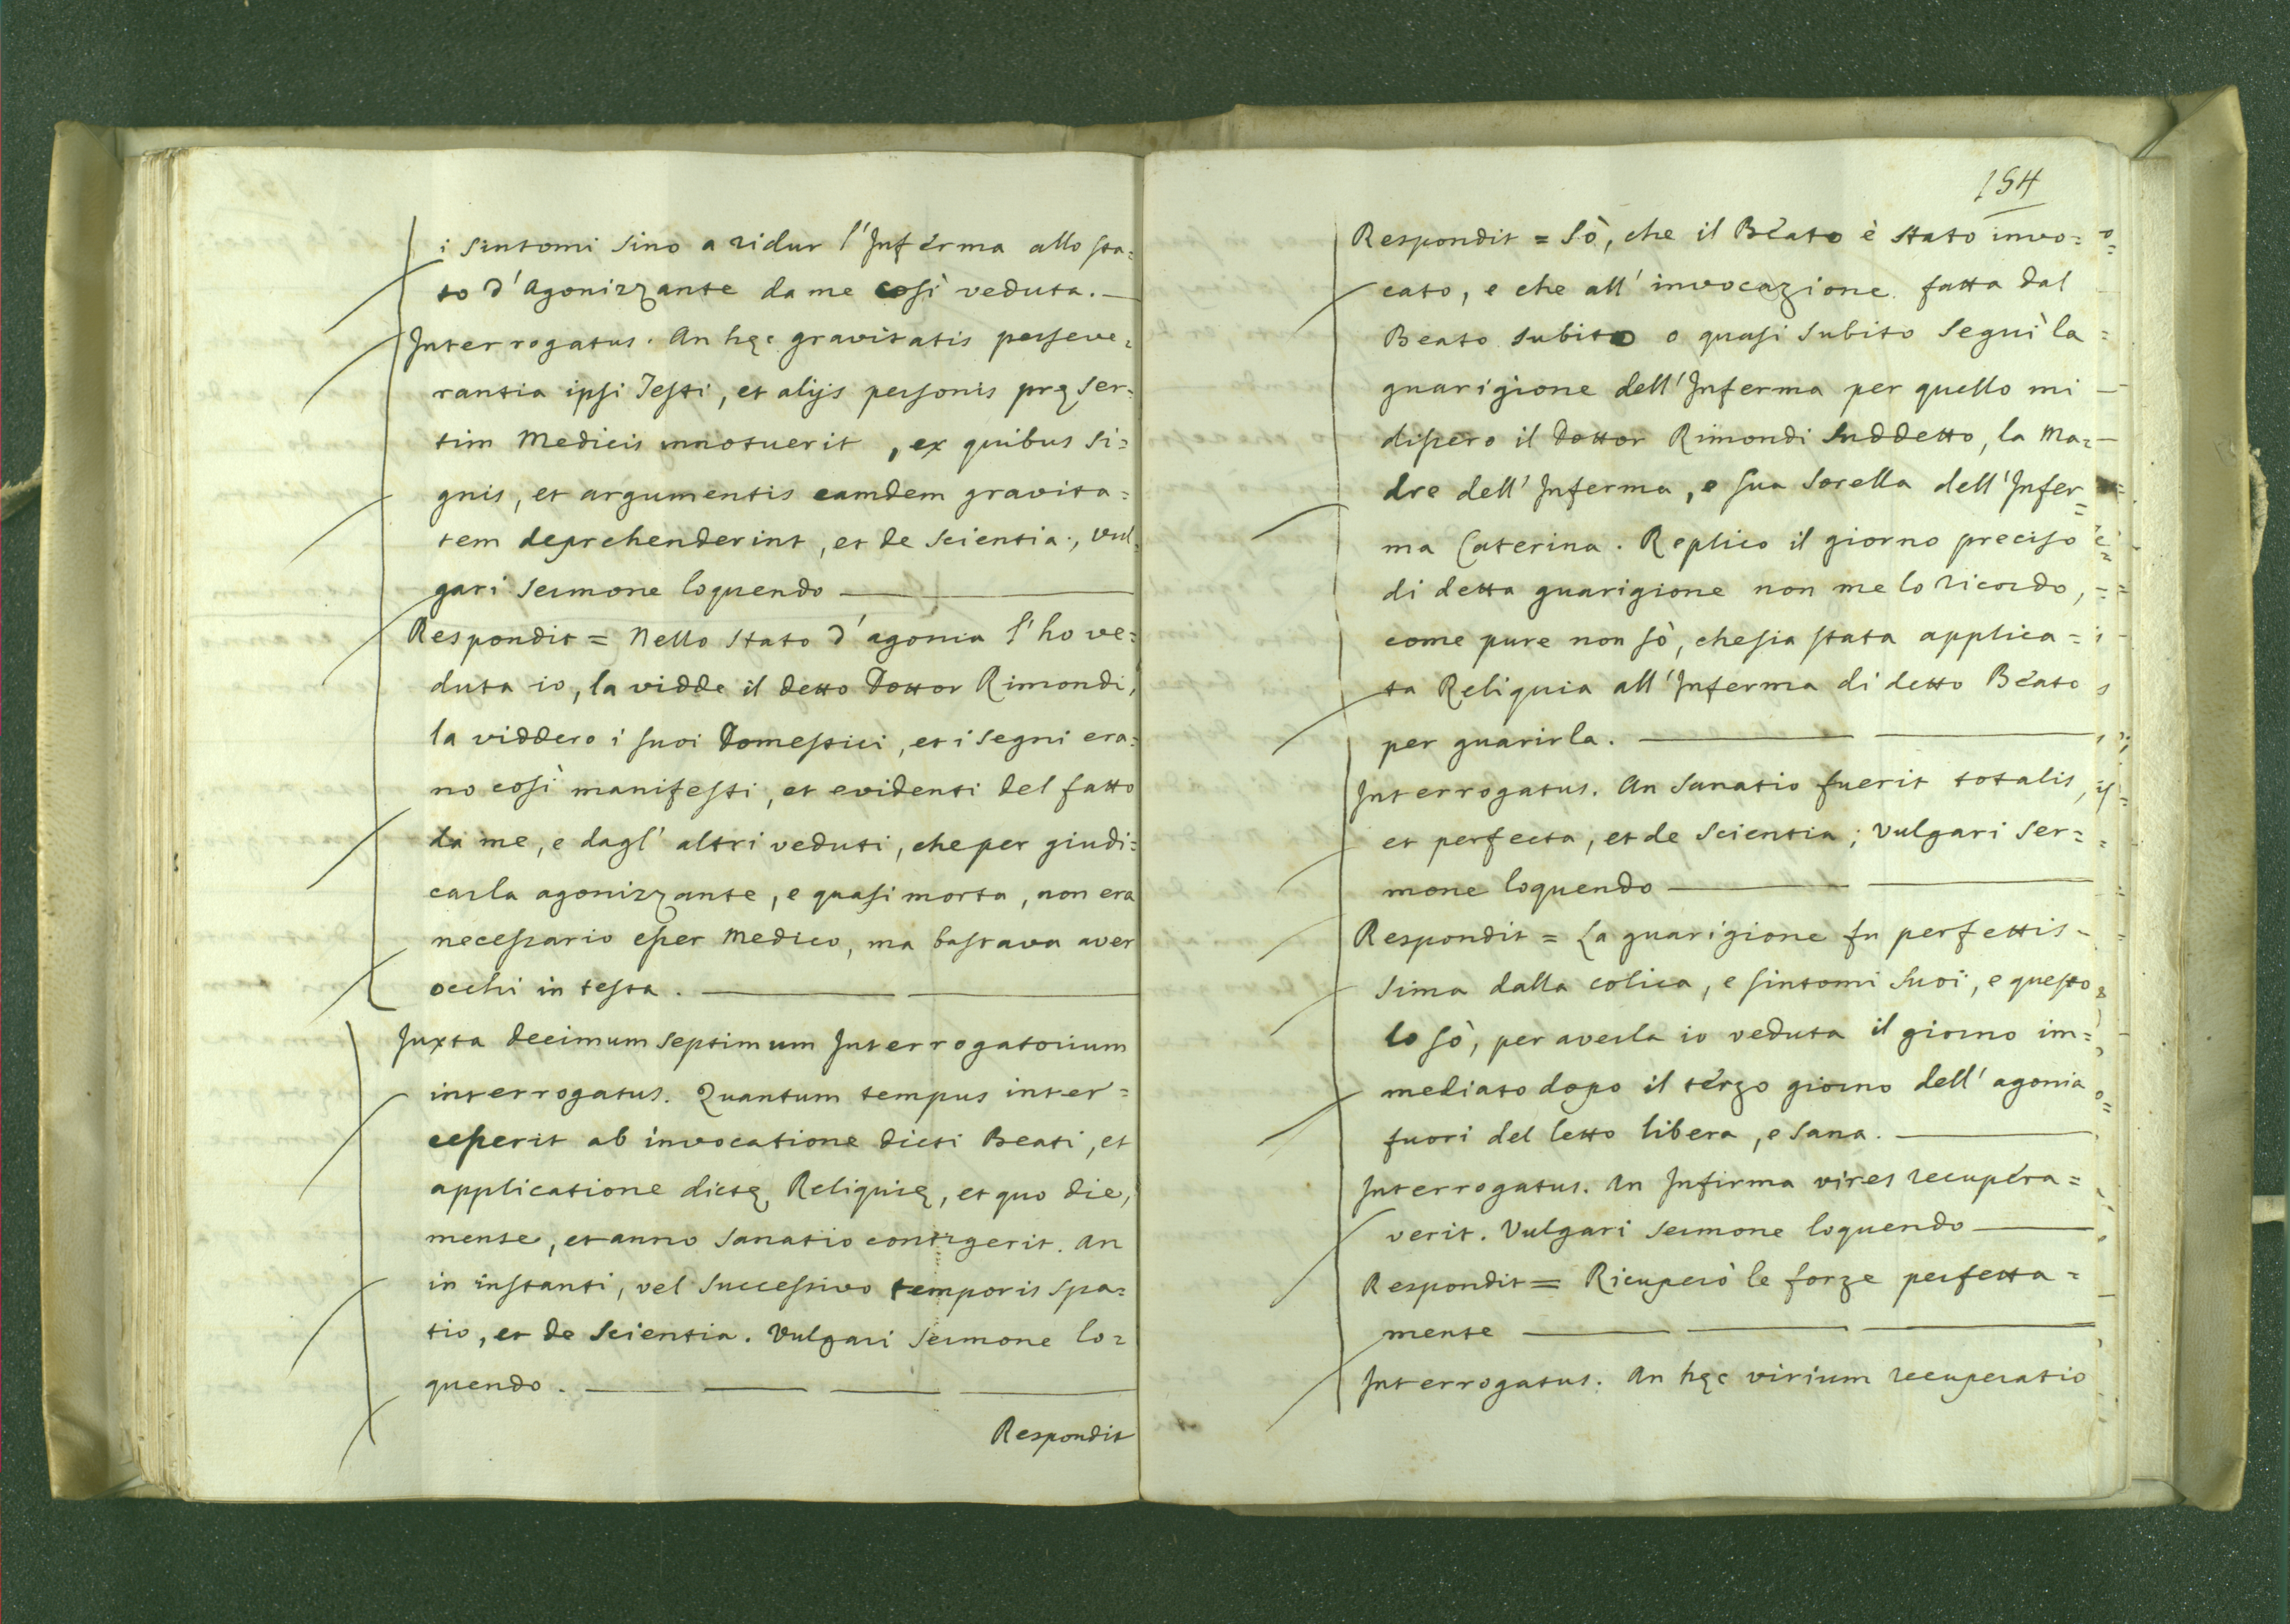 i Sintomi Sino a ridur l'Inferma allo sta=
to d'Agonizzante da me così veduta.
Interrogatus. An hęc gravitatis perseve=
rantia ipsi Testi, et alijs personis pręser=
tim Medicis innotuerit, ex quibus Si=
gnis, et argumentis eamdem gravita=
tem deprehenderint, et de Scientia., Vul=
gari Sermone loquendo
Respondit = Nello Stato d'agonia l'ho ve=
duta io, la vidde il detto Dottor Rimondi,
la viddero i suoi Domestici, et i Segni era=
no così manifesti, et evidenti del fatto
da me, e dagl'altri veduti, che per giudi=
carla agonizzante, e quasi morta, non era
necessario esser Medico, ma bastava aver
occhi in testa.
Juxta decimum Septimum Interrogatorium
interrogatus. Quantum tempus inter=
cesserit ab invocatione dicti Beati, et
applicatione dictę Reliquię, et quo die,
mense, et anno Sanatio contigerit. An
in instanti, vel Successivo temporis Spa=
tio, et de Scientia. Vulgari Sermone lo=
quendo.
Respondit
154
Respondit = Sò, che il Beato è Stato invo=
cato, e che all'invocazione fatta dal
Beato Subito o quasi Subito Seguì la
guarigione dell'Inferma per quello mi
dissero il Dottor Rimondi Suddetto, la Ma=
dre dell'Inferma, e sua Sorella dell'Infer=
ma Caterina. Replico il giorno preciso
di detta guarigione non me lo ricordo,
come pure non sò, che sia stata applica=
ta Reliquia all'Inferma di detto Beato
per guarirla.
Interrogatus. An Sanatio fuerit totalis,
et perfecta, et de Scientia; Vulgari Ser=
mone loquendo
Respondit = La guarigione fu perfettis=
Sima dalla colica, e sintomi Suoi, e questo
lo sò, per averla io veduta il giorno im=
mediato dopo il terzo giorno dell'agonia
fuori del letto libera, e Sana.
Interrogatus. An Infirma vires recupera=
verit. Vulgari Sermone loquendo
Respondit = Ricuperò le forze perfetta=
mente
Interrogatus. An hęc virium recuperatio